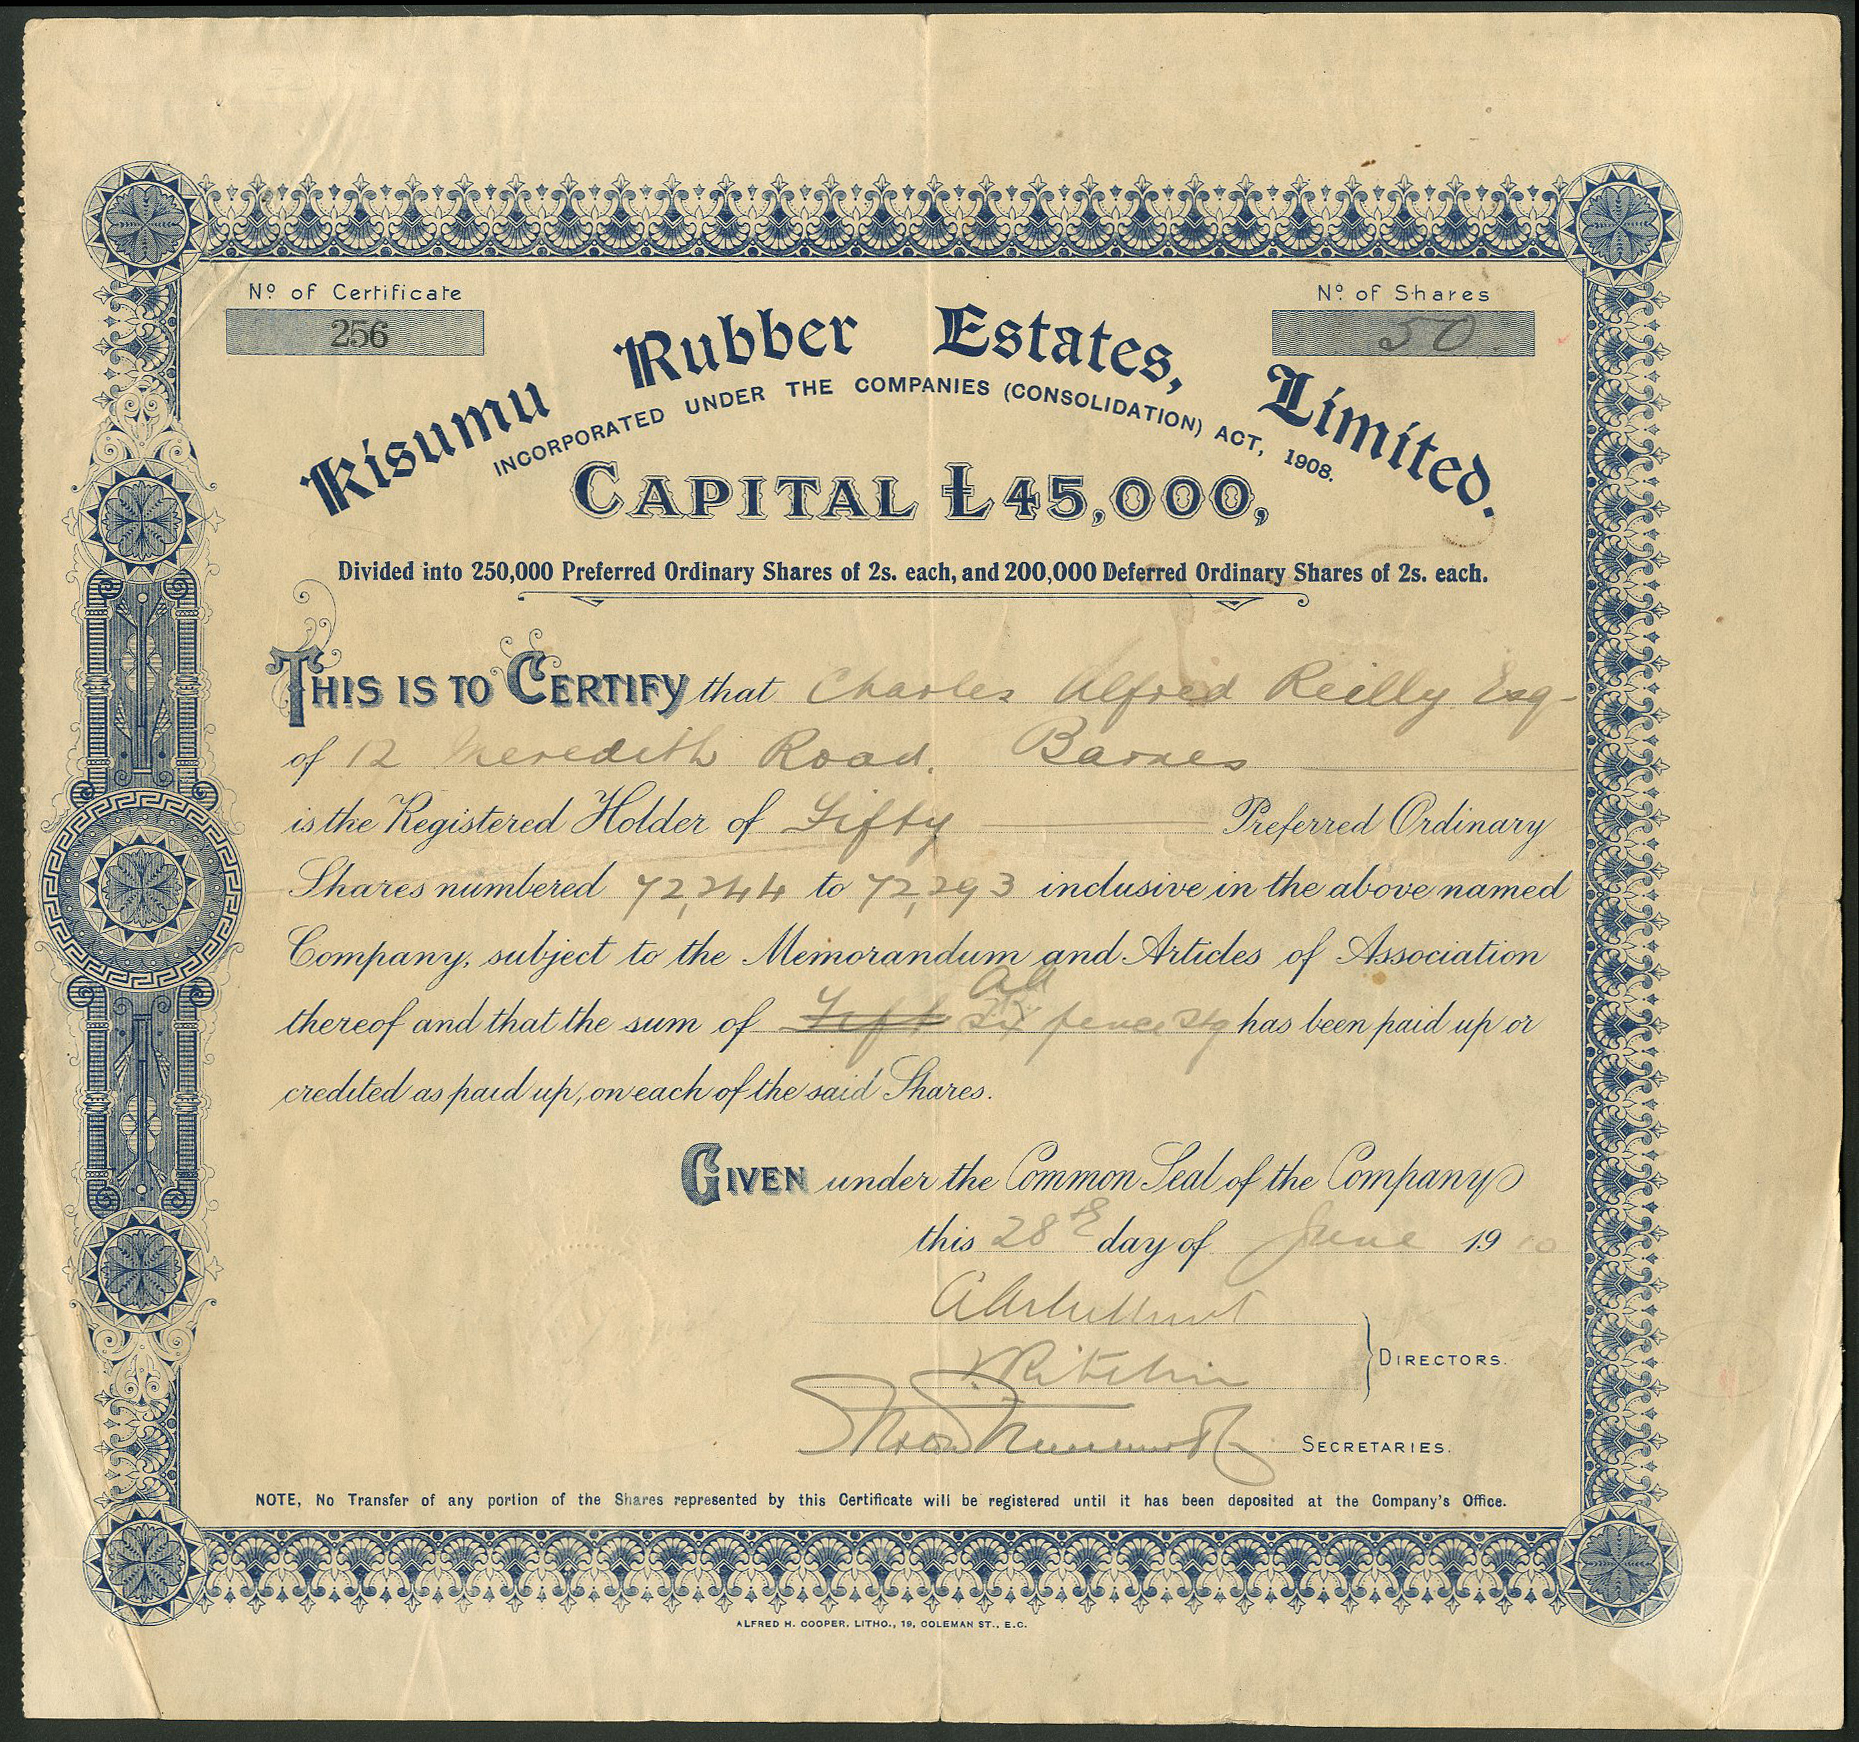 Nº of Certificate
256
Nº of Shares
50.
Kisumu Rubber Estates, Limited.
INCORPORATED UNDER THE COMPANIES (CONSOLIDATION) ACT, 1908.
CAPITAL £45,000,
Divided into 250,000 Preferred Ordinary Shares of 2s. each, and 200,000 Deferred Ordinary Shares of 2s. each.
THIS IS TO CERTIFY that Charles Alfred Reilly Esq-
of 12 Meredith Road. Barnes
is the Registered Holder of Fifty Preferred Ordinary
Shares numbered 72,244 to 72,293 inclusive in the above named
Company, subject to the Memorandum and Articles of Association
thereof and that the sum of Six pence Stg has been paid up or
credited as paid up, on each of the said Shares.
GIVEN under the Common Seal of the Company
this 28th day of June 1910
Ritchie
DIRECTORS.
SECRETARIES.
NOTE, No Transfer of any portion of the Shares represented by this Certificate will be registered until it has been deposited at the Company's Office.
ALFRED H. COOPER, LITHO., 19, COLEMAN ST., E.C.